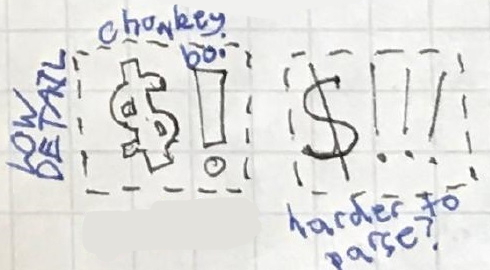 LOW
DETAIL
chonkey
boi
$!
$!!!
harder to
parse?